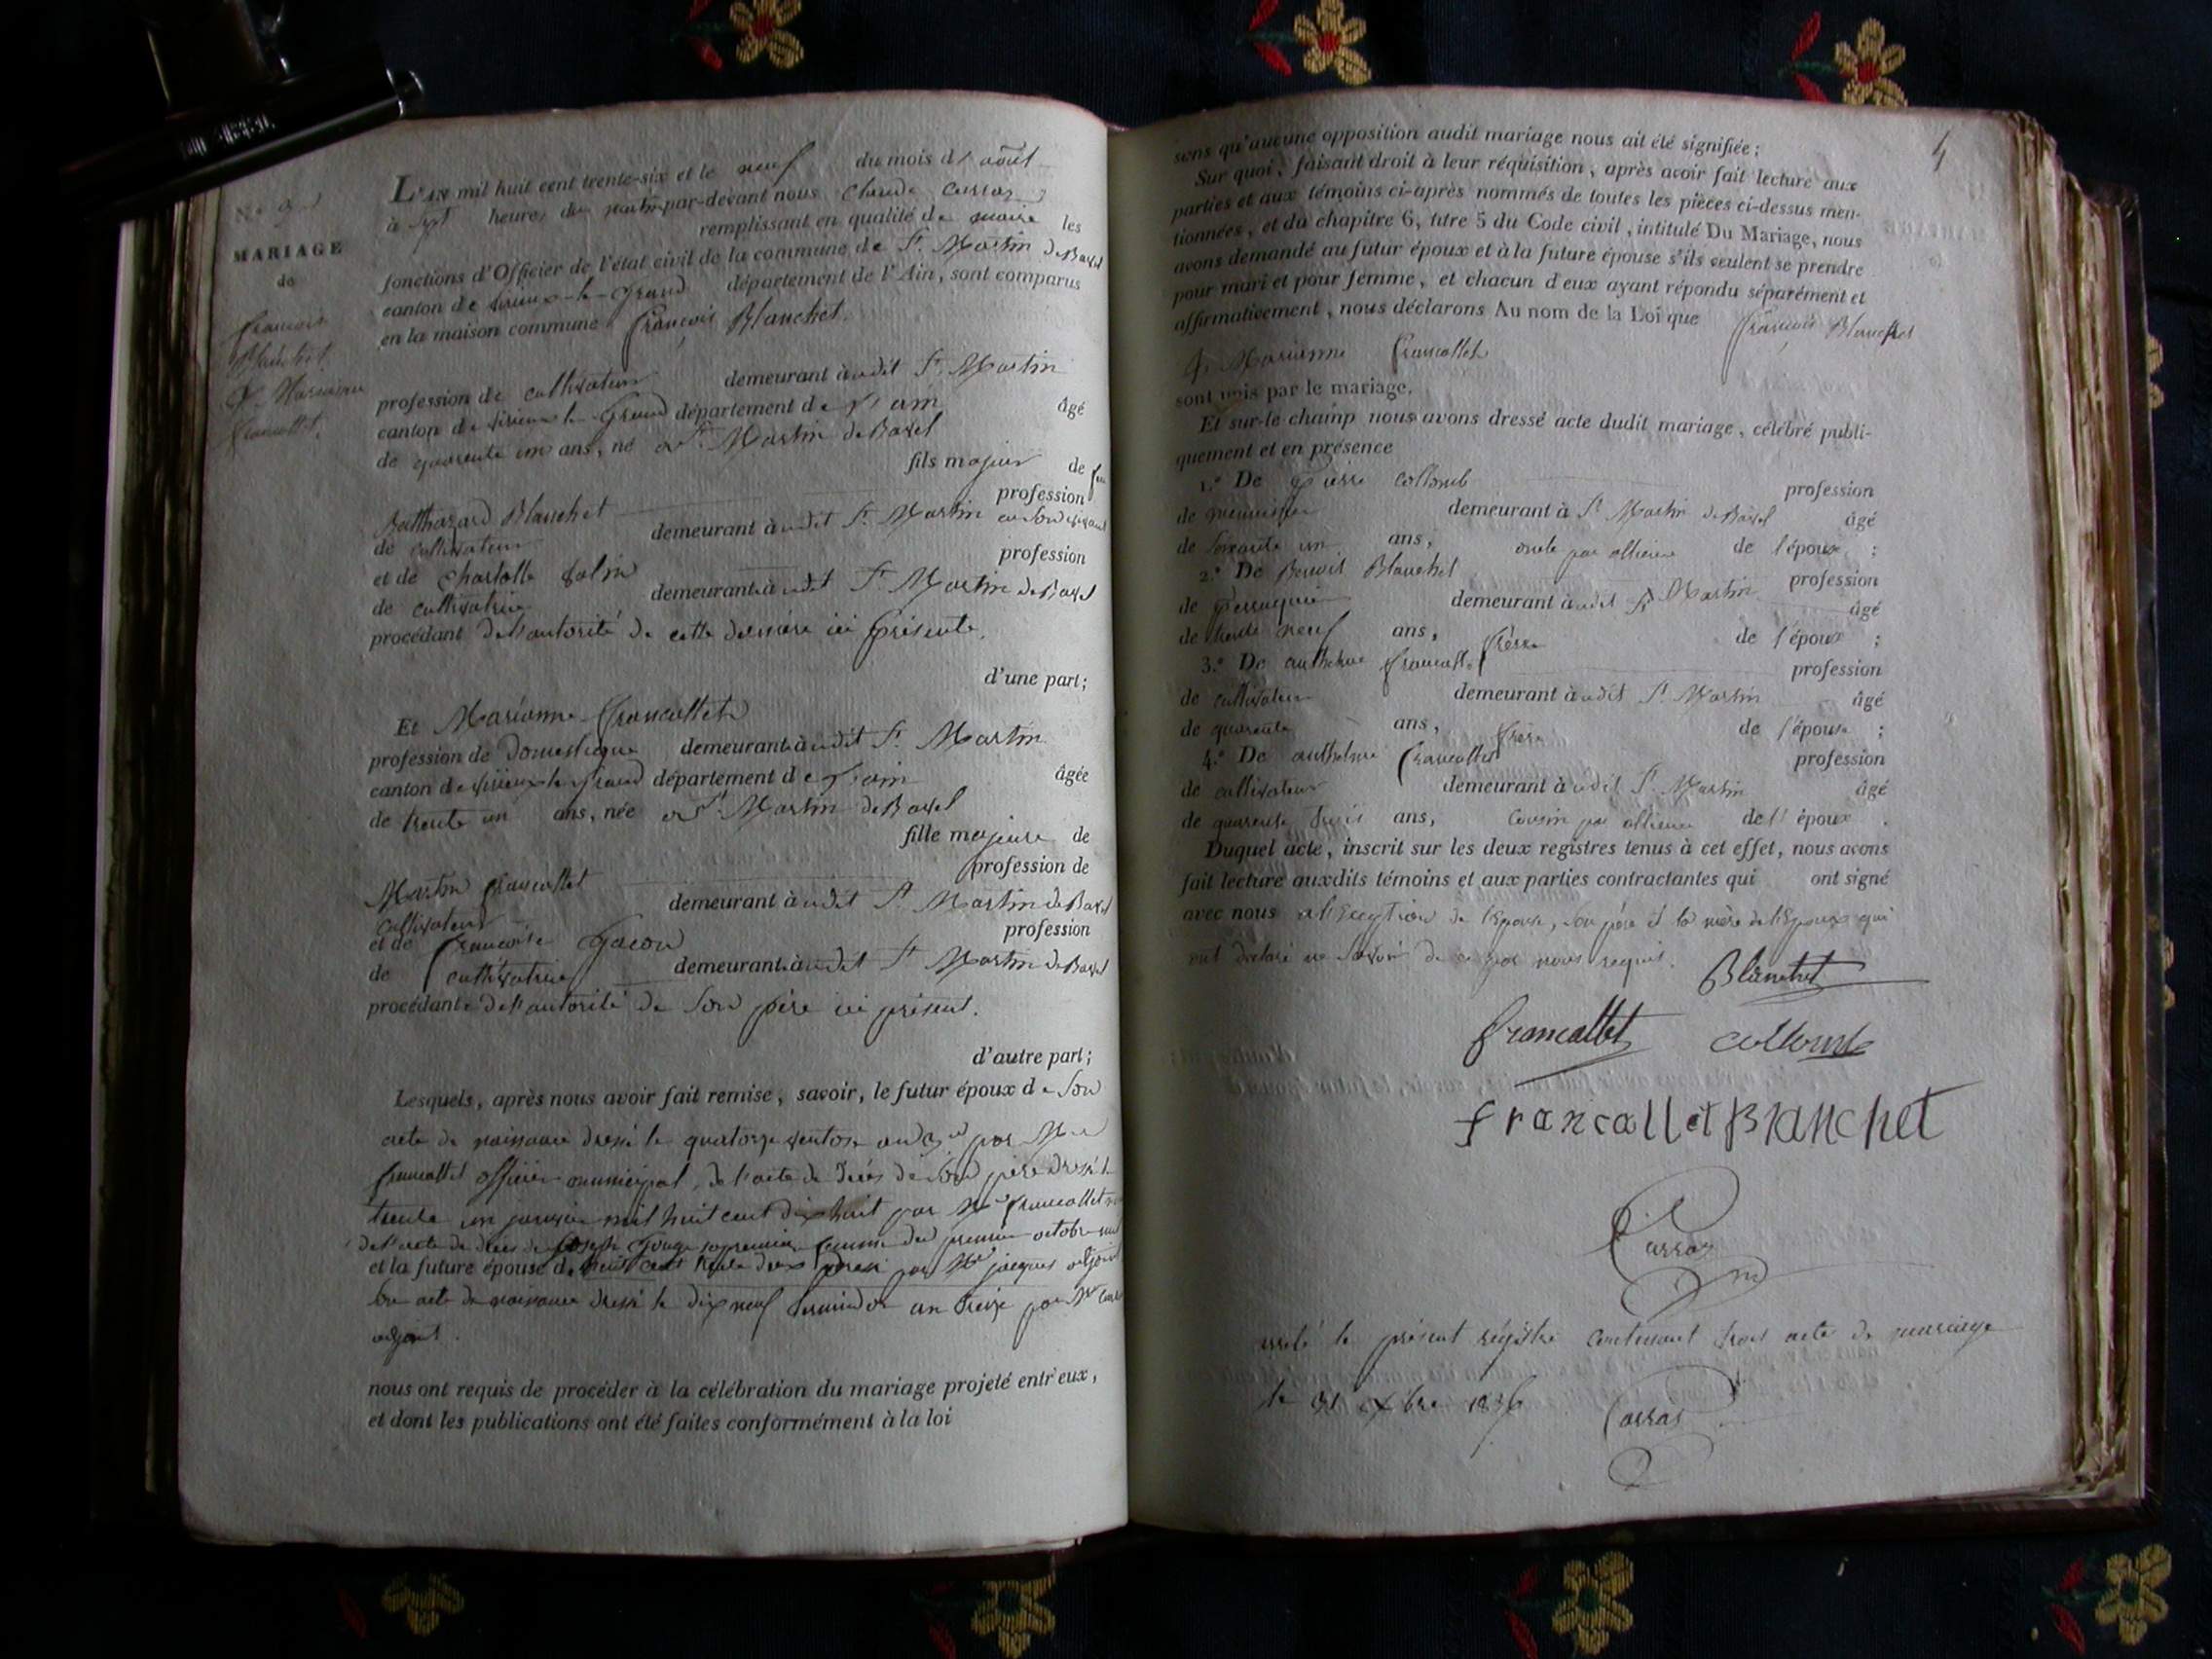 N.o 3
MARIAGE
de
françois
Blanchet
& Marianne
francallet.
L'AN mil huit cent trente-six et le neuf du mois d'août
à sept heures du matin par-devant nous Claude Carraz
remplissant en qualité de maire les
fonctions d'Officier de l'état civil de la commune de St. Martin de Bavel
canton de virieux-le-grand département de l'Ain, sont comparus
en la maison commune françois Blanchet.
profession de cultivateur demeurant audit St. Martin
canton de virieux le Grand département de l'ain âgé
de quarente un ans, né à St. Martin de Bavel
fils majeur de feu
Balthazard Blanchet profession
de cultivateur demeurant audit St. Martin en son vivant
et de Charlotte profession
de cultivatrice demeurante audit St. Martin de Bavel
procédant de l'autorité de cette dernière ici présente.
d'une part;
Et Marianne francallet
profession de Domestique demeurante audit St. Martin
canton de virieux le grand département de l'ain âgée
de trente un ans, née à St. Martin de Bavel
fille majeure de
Martin francallet profession de
cultivateur demeurant audit St. Martin de Bavel
et de françoise Gacon profession
de cultivatrice demeurante audit St. Martin de Bavel
procédante de l'autorité de son père ici présent.
d'autre part;
Lesquels, après nous avoir fait remise, savoir, le futur époux de son
acte de naissance dressé le quatorze ventose an 3e par Mr
francallet officier municipal, de l'acte de décès de son père dressé le
trente un janvier mil huit cent dix huit par Mr francallet
de l'acte de décès de sa première femme du premier octobre mil
et la future épouse d huit cent trente deux dressé par Mr jacques adjoint
son acte de naissance dressé le dix neuf termidor an treize par Mr
adjoint.
nous ont requis de procéder à la célébration du mariage projeté entr'eux,
et dont les publications ont été faites conformément à la loi
4
sans qu'aucune opposition audit mariage nous ait été signifiée;
Sur quoi, faisant droit à leur réquisition, après avoir fait lecture aux
parties et aux témoins ci-après nommés de toutes les pièces ci-dessus men-
tionnées, et du chapitre 6, titre 5 du Code civil, intitulé Du Mariage, nous
avons demandé au futur époux et à la future épouse s'ils veulent se prendre
pour mari et pour femme, et chacun d'eux ayant répondu séparément et
affirmativement, nous déclarons Au nom de la Loi que françois Blanchet
& Marianne francallet
sont unis par le mariage.
Et sur-le champ nous avons dressé acte dudit mariage, célébré publi-
quement et en présence
1.o De Pierre Collomb profession
de menuisier demeurant à St. Martin de Bavel âgé
de soixante un ans, oncle par alliance de l'époux;
2.o De Benoit Blanchet profession
de Perruquier demeurant audit St. Martin âgé
de trente neuf ans, frère de l'époux;
3.o De anthelme francallet profession
de cultivateur demeurant audit St. Martin âgé
de quarente ans, frère de l'épouse;
4.o De anthelme francallet profession
de cultivateur demeurant audit St. Martin âgé
de quarente trois ans, Cousin par alliance de l'époux.
Duquel acte, inscrit sur les deux registres tenus à cet effet, nous avons
fait lecture auxdits témoins et aux parties contractantes qui ont signé
avec nous à l'Exception de l'épouse, son père et la mère de l'Epoux qui
ont déclaré ne savoir de ce par nous requis.
Blanchet
francallet collomb
francallet Blanchet
Carraz
arrêté le présent régistre contenant trois acte de mariage
le 31 Xbre 1836 Carraz